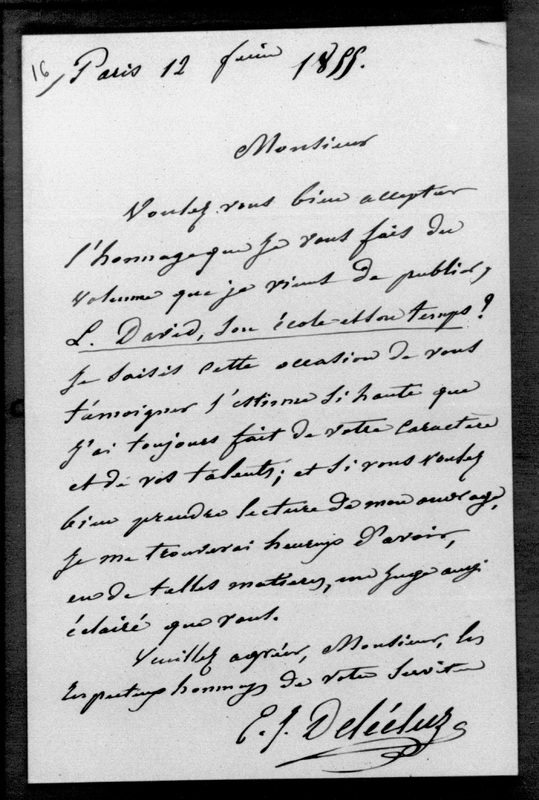 16/ Paris 12 juin 1855.
Monsieur
Voulez vous bien accepter
l'hommage que je vous fait du
volume que je viens de publier,
L. David, son école et son temps?
Je saisis cette occasion de vous
témoigner l'estime si haute que
j'ai toujours fait de votre caractère
et de vos talents; et si vous voulez
bien prendre lecture de mon ouvrage,
je me trouverai heureux d'avoir,
en de telles matieres, un juge aussi
éclairé que vous.
Veuillez agréer, Monsieur, les
respectueux hommages de votre servite
E. J. Delécluze